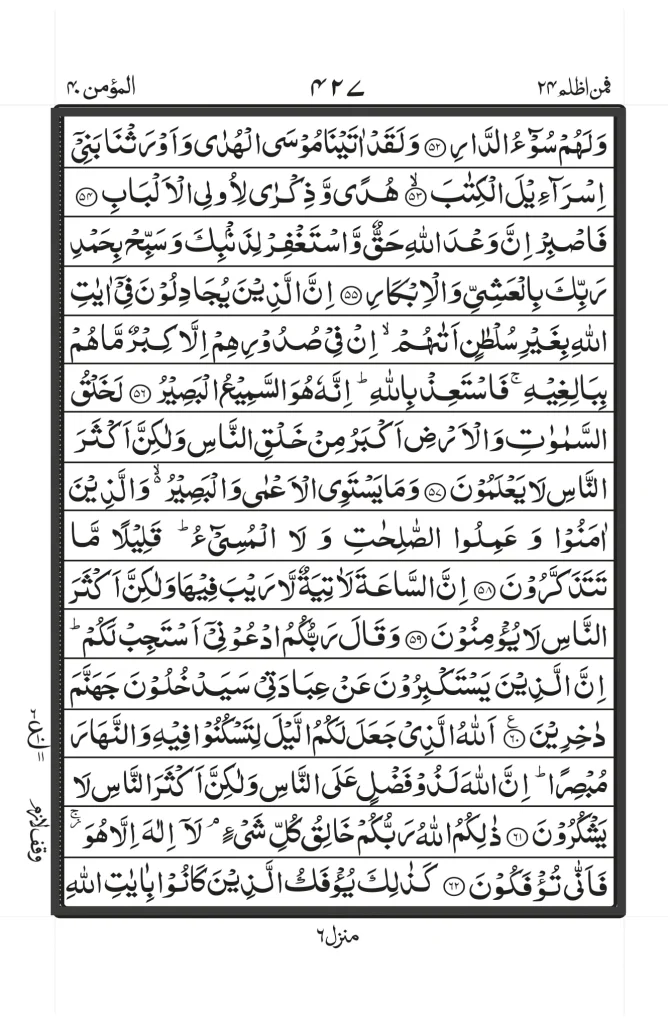 فمن اظلم ۲۴
۴۲۷
المؤمن ۴۰
وَلَهُمْ سُوْٓءُ الدَّارِ ﴿۵۲﴾ وَلَقَدْ اٰتَيْنَا مُوْسَى الْهُدٰى وَاَوْرَثْنَا بَنِيْٓ
اِسْرَآءِيْلَ الْكِتٰبَ ﴿۵۳﴾ۙ هُدًى وَّذِكْرٰى لِاُولِى الْاَلْبَابِ ﴿۵۴﴾
فَاصْبِرْ اِنَّ وَعْدَ اللّٰهِ حَقٌّ وَّاسْتَغْفِرْ لِذَنْۢبِكَ وَسَبِّحْ بِحَمْدِ
رَبِّكَ بِالْعَشِيِّ وَالْاِبْكَارِ ﴿۵۵﴾ اِنَّ الَّذِيْنَ يُجَادِلُوْنَ فِيْٓ اٰيٰتِ
اللّٰهِ بِغَيْرِ سُلْطٰنٍ اَتٰىهُمْ ۙ اِنْ فِيْ صُدُوْرِهِمْ اِلَّا كِبْرٌ مَّا هُمْ
بِبَالِغِيْهِ ۚ فَاسْتَعِذْ بِاللّٰهِ ؕ اِنَّهٗ هُوَ السَّمِيْعُ الْبَصِيْرُ ﴿۵۶﴾ لَخَلْقُ
السَّمٰوٰتِ وَالْاَرْضِ اَكْبَرُ مِنْ خَلْقِ النَّاسِ وَلٰكِنَّ اَكْثَرَ
النَّاسِ لَا يَعْلَمُوْنَ ﴿۵۷﴾ وَمَا يَسْتَوِى الْاَعْمٰى وَالْبَصِيْرُ ۙ۬ وَالَّذِيْنَ
اٰمَنُوْا وَ عَمِلُوا الصّٰلِحٰتِ وَ لَا الْمُسِيْٓءُ ؕ قَلِيْلًا مَّا
تَتَذَكَّرُوْنَ ﴿۵۸﴾ اِنَّ السَّاعَةَ لَاٰتِيَةٌ لَّا رَيْبَ فِيْهَا وَلٰكِنَّ اَكْثَرَ
النَّاسِ لَا يُؤْمِنُوْنَ ﴿۵۹﴾ وَقَالَ رَبُّكُمُ ادْعُوْنِيْٓ اَسْتَجِبْ لَكُمْ ؕ
اِنَّ الَّذِيْنَ يَسْتَكْبِرُوْنَ عَنْ عِبَادَتِيْ سَيَدْخُلُوْنَ جَهَنَّمَ
دٰخِرِيْنَ ﴿۶۰﴾ۧ اَللّٰهُ الَّذِيْ جَعَلَ لَكُمُ الَّيْلَ لِتَسْكُنُوْا فِيْهِ وَالنَّهَارَ
مُبْصِرًا ؕ اِنَّ اللّٰهَ لَذُوْ فَضْلٍ عَلَى النَّاسِ وَلٰكِنَّ اَكْثَرَ النَّاسِ لَا
يَشْكُرُوْنَ ﴿۶۱﴾ ذٰلِكُمُ اللّٰهُ رَبُّكُمْ خَالِقُ كُلِّ شَيْءٍ ۘ لَآ اِلٰهَ اِلَّا هُوَ ۚ
فَاَنّٰى تُؤْفَكُوْنَ ﴿۶۲﴾ كَذٰلِكَ يُؤْفَكُ الَّذِيْنَ كَانُوْا بِاٰيٰتِ اللّٰهِ
وقف لازم
منزل ۶